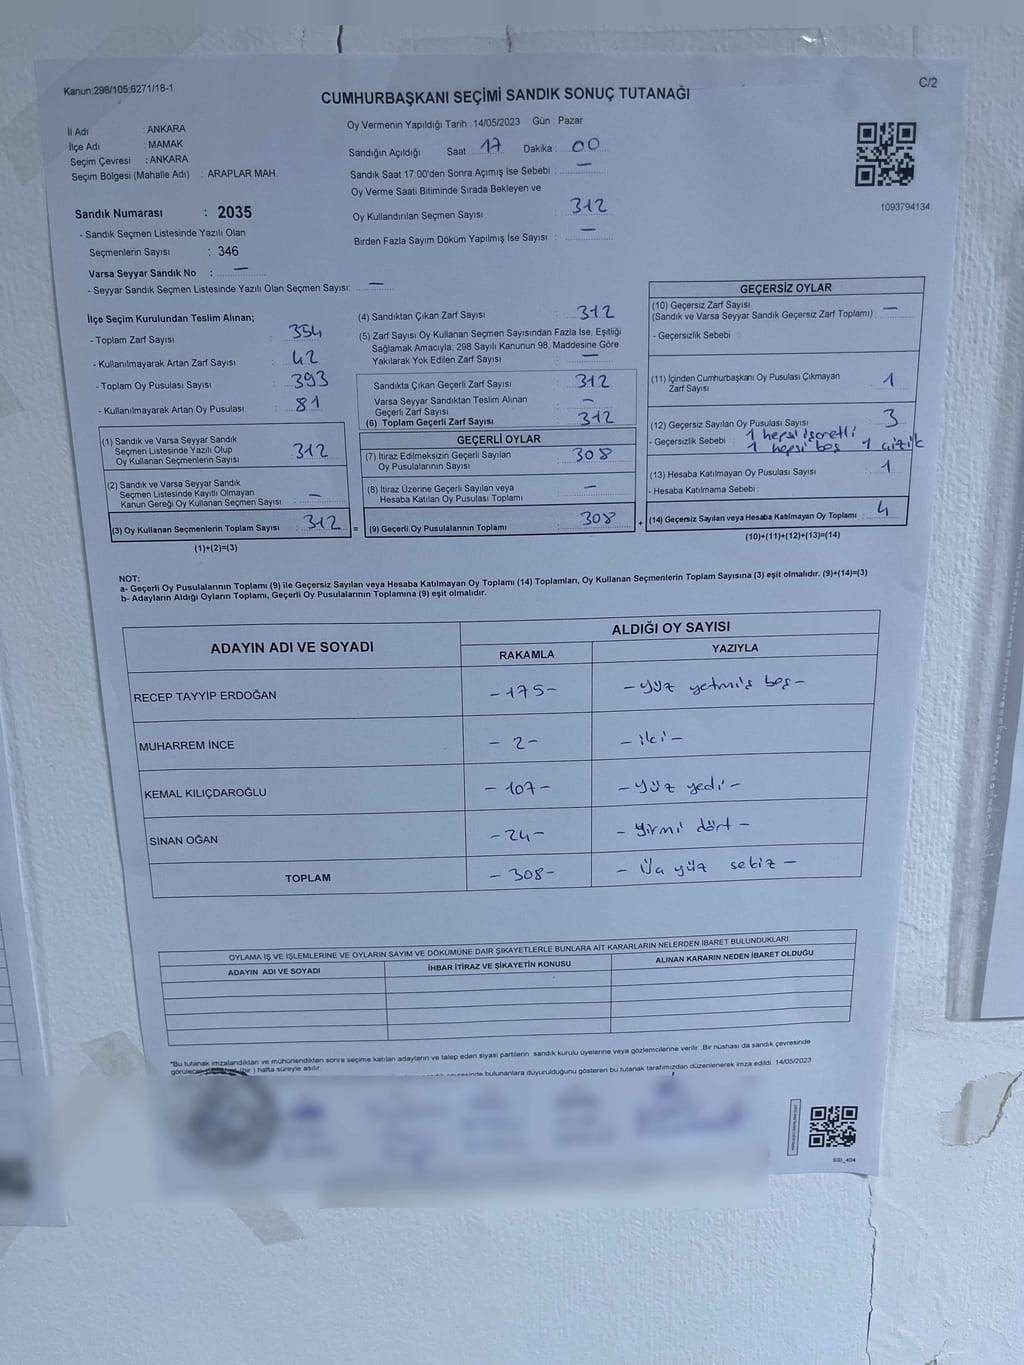 Kanun:298/105;6271/18-1
C/2
CUMHURBAŞKANI SEÇİMİ SANDIK SONUÇ TUTANAĞI
İl Adı : ANKARA
İlçe Adı : MAMAK
Seçim Çevresi : ANKARA
Seçim Bölgesi (Mahalle Adı) : ARAPLAR MAH.
Sandık Numarası : 2035
- Sandık Seçmen Listesinde Yazılı Olan
Seçmenlerin Sayısı : 346
Varsa Seyyar Sandık No : —
- Seyyar Sandık Seçmen Listesinde Yazılı Olan Seçmen Sayısı: —
Oy Vermenin Yapıldığı Tarih : 14/05/2023 Gün : Pazar
Sandığın Açıldığı Saat 17 Dakika : 00
Sandık Saat 17:00'den Sonra Açımış İse Sebebi : —
Oy Verme Saati Bitiminde Sırada Bekleyen ve
Oy Kullandırılan Seçmen Sayısı : 312
Birden Fazla Sayım Döküm Yapılmış İse Sayısı : —
1093794134
İlçe Seçim Kurulundan Teslim Alınan;
- Toplam Zarf Sayısı : 354
- Kullanılmayarak Artan Zarf Sayısı : 42
- Toplam Oy Pusulası Sayısı : 393
- Kullanılmayarak Artan Oy Pusulası : 81
(1) Sandık ve Varsa Seyyar Sandık
Seçmen Listesinde Yazılı Olup
Oy Kullanan Seçmenlerin Sayısı : 312
(2) Sandık ve Varsa Seyyar Sandık
Seçmen Listesinde Kayıtlı Olmayan
Kanun Gereği Oy Kullanan Seçmen Sayısı : —
(3) Oy Kullanan Seçmenlerin Toplam Sayısı : 312 =
(1)+(2)=(3)
(4) Sandıktan Çıkan Zarf Sayısı : 312
(5) Zarf Sayısı Oy Kullanan Seçmen Sayısından Fazla İse, Eşitliği
Sağlamak Amacıyla; 298 Sayılı Kanunun 98. Maddesine Göre
Yakılarak Yok Edilen Zarf Sayısı : —
Sandıkta Çıkan Geçerli Zarf Sayısı : 312
Varsa Seyyar Sandıktan Teslim Alınan
Geçerli Zarf Sayısı : —
(6) Toplam Geçerli Zarf Sayısı : 312
GEÇERLİ OYLAR
(7) İtiraz Edilmeksizin Geçerli Sayılan
Oy Pusulalarının Sayısı : 308
(8) İtiraz Üzerine Geçerli Sayılan veya
Hesaba Katılan Oy Pusulası Toplamı : —
(9) Geçerli Oy Pusulalarının Toplamı : 308 +
GEÇERSİZ OYLAR
(10) Geçersiz Zarf Sayısı
(Sandık ve Varsa Seyyar Sandık Geçersiz Zarf Toplamı) : —
- Geçersizlik Sebebi :
(11) İçinden Cumhurbaşkanı Oy Pusulası Çıkmayan
Zarf Sayısı : 1
(12) Geçersiz Sayılan Oy Pusulası Sayısı : 3
- Geçersizlik Sebebi : 1 hepsi işaretli
1 hepsi boş 1 çizik
(13) Hesaba Katılmayan Oy Pusulası Sayısı : 1
- Hesaba Katılmama Sebebi :
(14) Geçersiz Sayılan veya Hesaba Katılmayan Oy Toplamı : 4
(10)+(11)+(12)+(13)=(14)
NOT:
a- Geçerli Oy Pusulalarının Toplamı (9) ile Geçersiz Sayılan veya Hesaba Katılmayan Oy Toplamı (14) Toplamları, Oy Kullanan Seçmenlerin Toplam Sayısına (3) eşit olmalıdır. (9)+(14)=(3)
b- Adayların Aldığı Oyların Toplamı, Geçerli Oy Pusulalarının Toplamına (9) eşit olmalıdır.
ADAYIN ADI VE SOYADI
ALDIĞI OY SAYISI
RAKAMLA YAZIYLA
RECEP TAYYİP ERDOĞAN -175- -yüz yetmiş beş-
MUHARREM İNCE -2- -iki-
KEMAL KILIÇDAROĞLU -107- -yüz yedi-
SİNAN OĞAN -24- -yirmi dört-
TOPLAM -308- -Üç yüz sekiz-
OYLAMA İŞ VE İŞLEMLERİNE VE OYLARIN SAYIM VE DÖKÜMÜNE DAİR ŞİKAYETLERLE BUNLARA AİT KARARLARIN NELERDEN İBARET BULUNDUKLARI
ADAYIN ADI VE SOYADI İHBAR İTİRAZ VE ŞİKAYETİN KONUSU ALINAN KARARIN NEDEN İBARET OLDUĞU
"Bu tutanak imzalandıktan ve mühürlendikten sonra seçime katılan adayların ve talep eden siyasi partilerin sandık kurulu üyelerine veya gözlemcilerine verilir. Bir nüshası da sandık çevresinde
(bir ) hafta süreyle asılır.
bulunanlara duyurulduğunu gösteren bu tutanak tarafımızdan düzenlenerek imza edildi. 14/05/2023
SSI_404